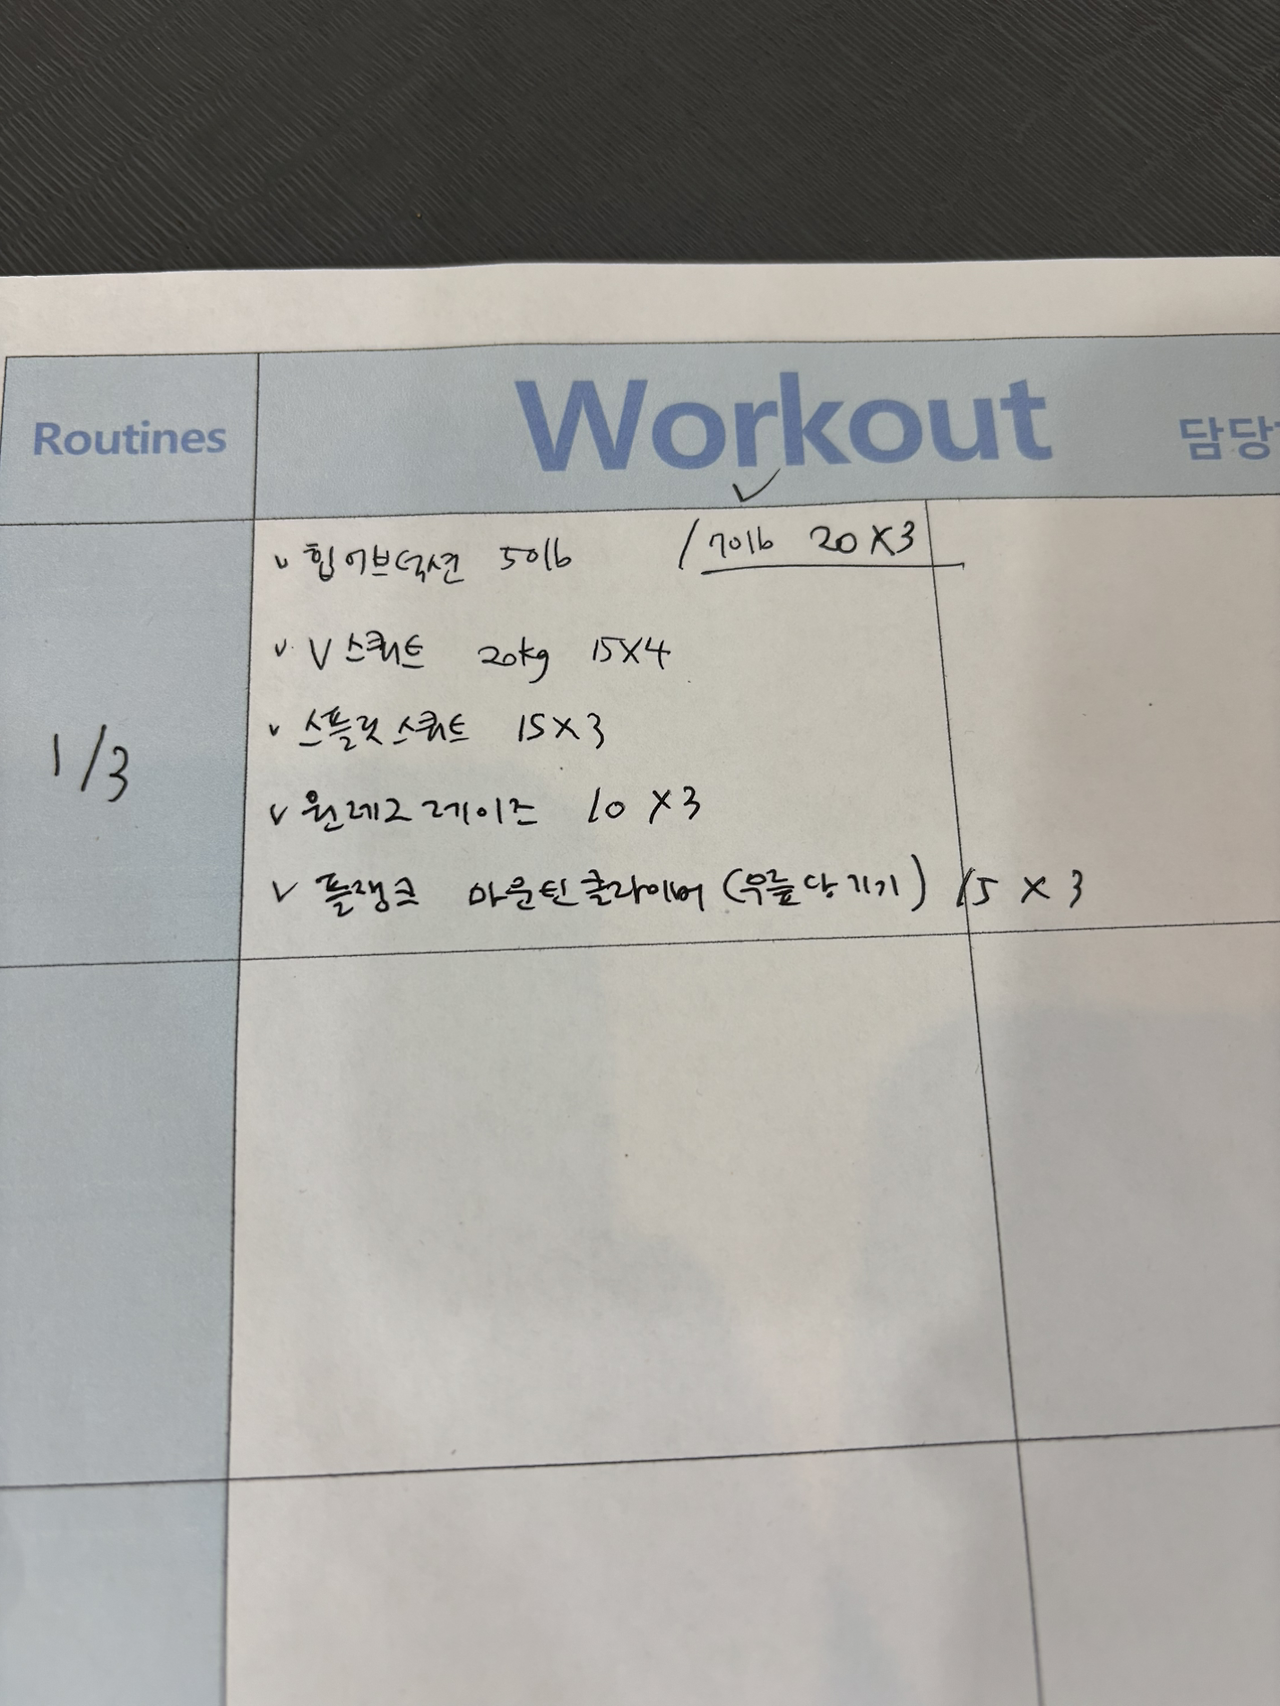 Routines Workout 담당
✓
1/3
✓ 힙어브덕션 50lb /70lb 20X3
✓ V스쿼트 20kg 15X4
✓ 스플릿스쿼트 15X3
✓ 원레그레이즈 10 X3
✓ 플랭크 마운틴클라이머(무릎당기기) 15 X 3